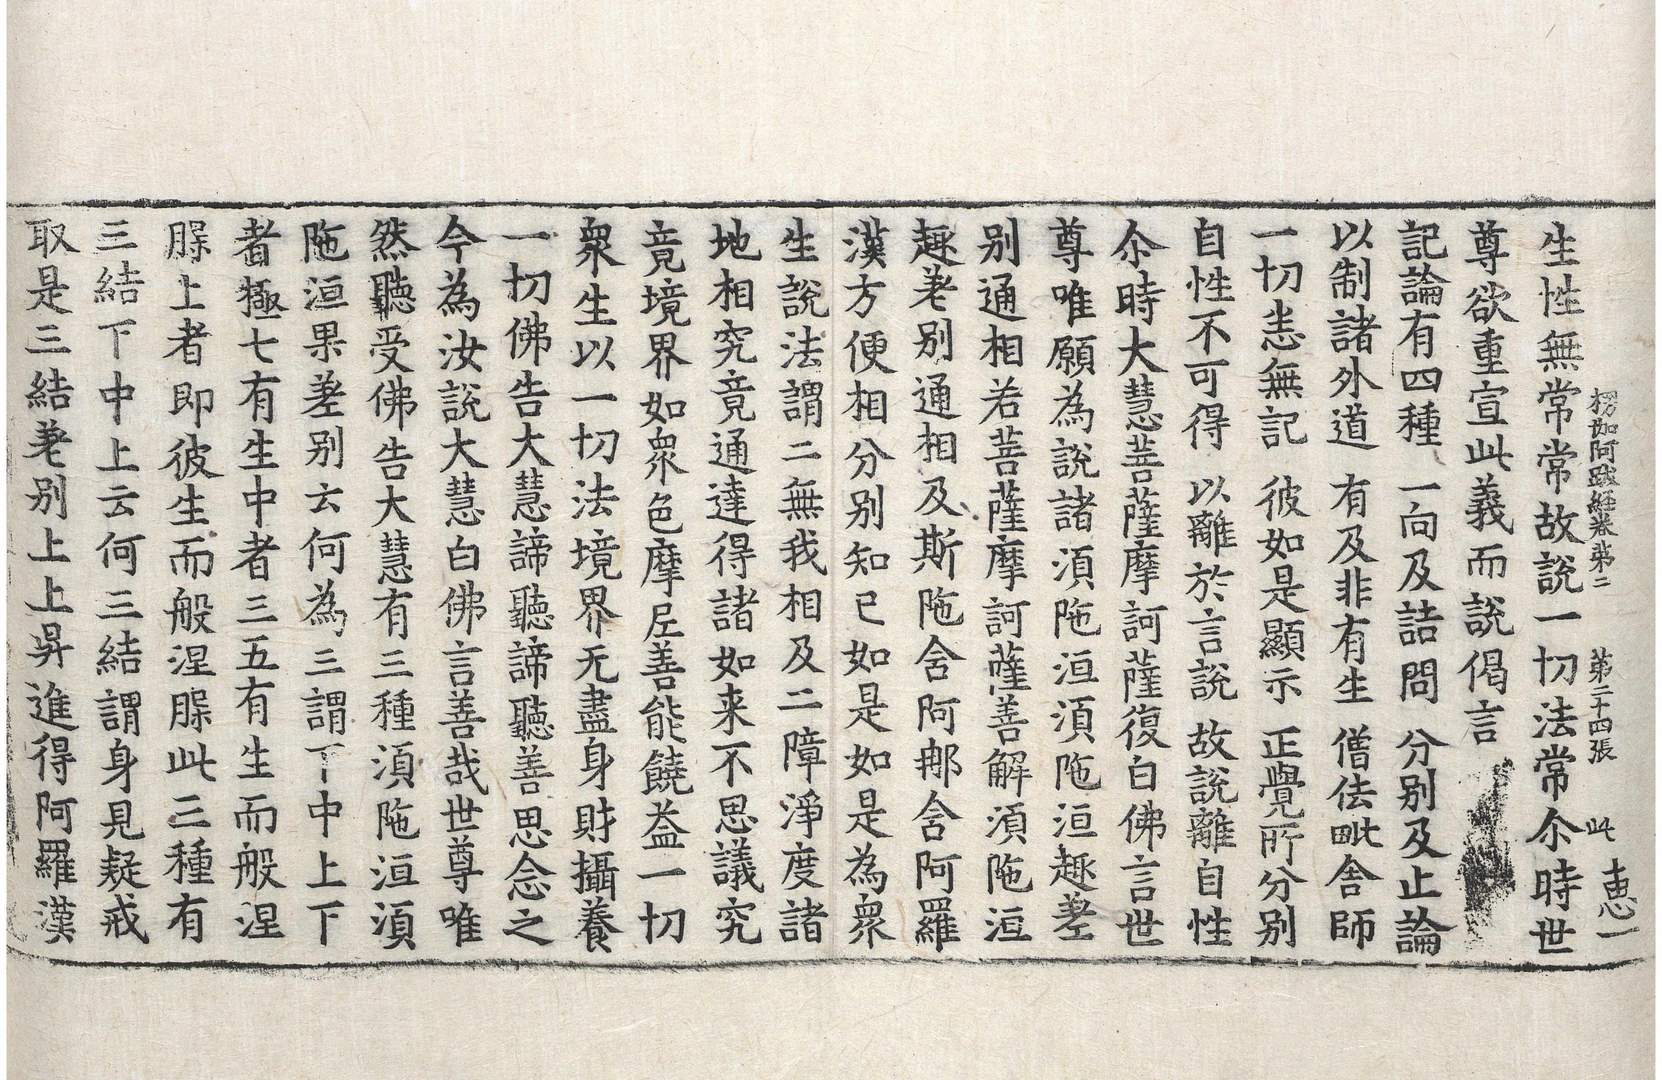 楞伽阿跋経卷苐二　第二十四張　此　恵一
生性無常常故說一切法常尒時世
尊欲重宣此義而說偈言
記論有四種　一向及詰問　分别及止論
以制諸外道　有及非有生　僧佉毗舍師
一切悉無記　彼如是顯示　正覺所分别
自性不可得　以離於言說　故說離自性
尒時大慧菩薩摩訶薩復白佛言世
尊唯願為說諸湏陁洹湏陁洹趣差
别通相若菩薩摩訶薩善解湏陁洹
趣差别通相及斯陁含阿𨙻含阿羅
漢方便相分别知已如是如是為衆
生說法謂二無我相及二障淨度諸
地相究竟通達得諸如来不思議究
竟境界如衆色摩尼善能饒益一切
衆生以一切法境界无盡身財攝養
一切佛告大慧諦聽諦聽善思念之
今為汝說大慧白佛言善哉世尊唯
然聽受佛告大慧有三種湏陁洹湏
陁洹果差别云何為三謂下中上下
者極七有生中者三五有生而般涅
槃上者即彼生而般涅槃此三種有
三結下中上云何三結謂身見疑戒
取是三結差别上上昇進得阿羅漢